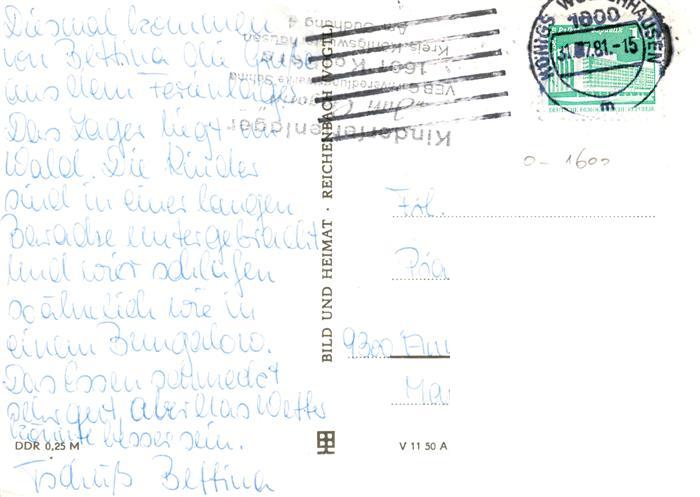 Diesmal kommen
von Bettina die Grüße
aus dem Ferienlager.
Das Lager liegt im
Wald. Die Kinder
sind in einer langen
Baracke untergebracht
und wir schlafen
so ähnlich wie in
einem Bungalow.
Das Essen schmeckt
sehr gut aber das Wetter
könnte besser sein.
Tschüß Bettina
DDR 0,25 M
BILD UND HEIMAT · REICHENBACH (VOGTL)
V 11 50 A
Kinderferienlager
VEB
1601
Am
KÖNIGS WUSTERHAUSEN
1600
31.-7.81.-15
m
0-1600
Frl.
9300